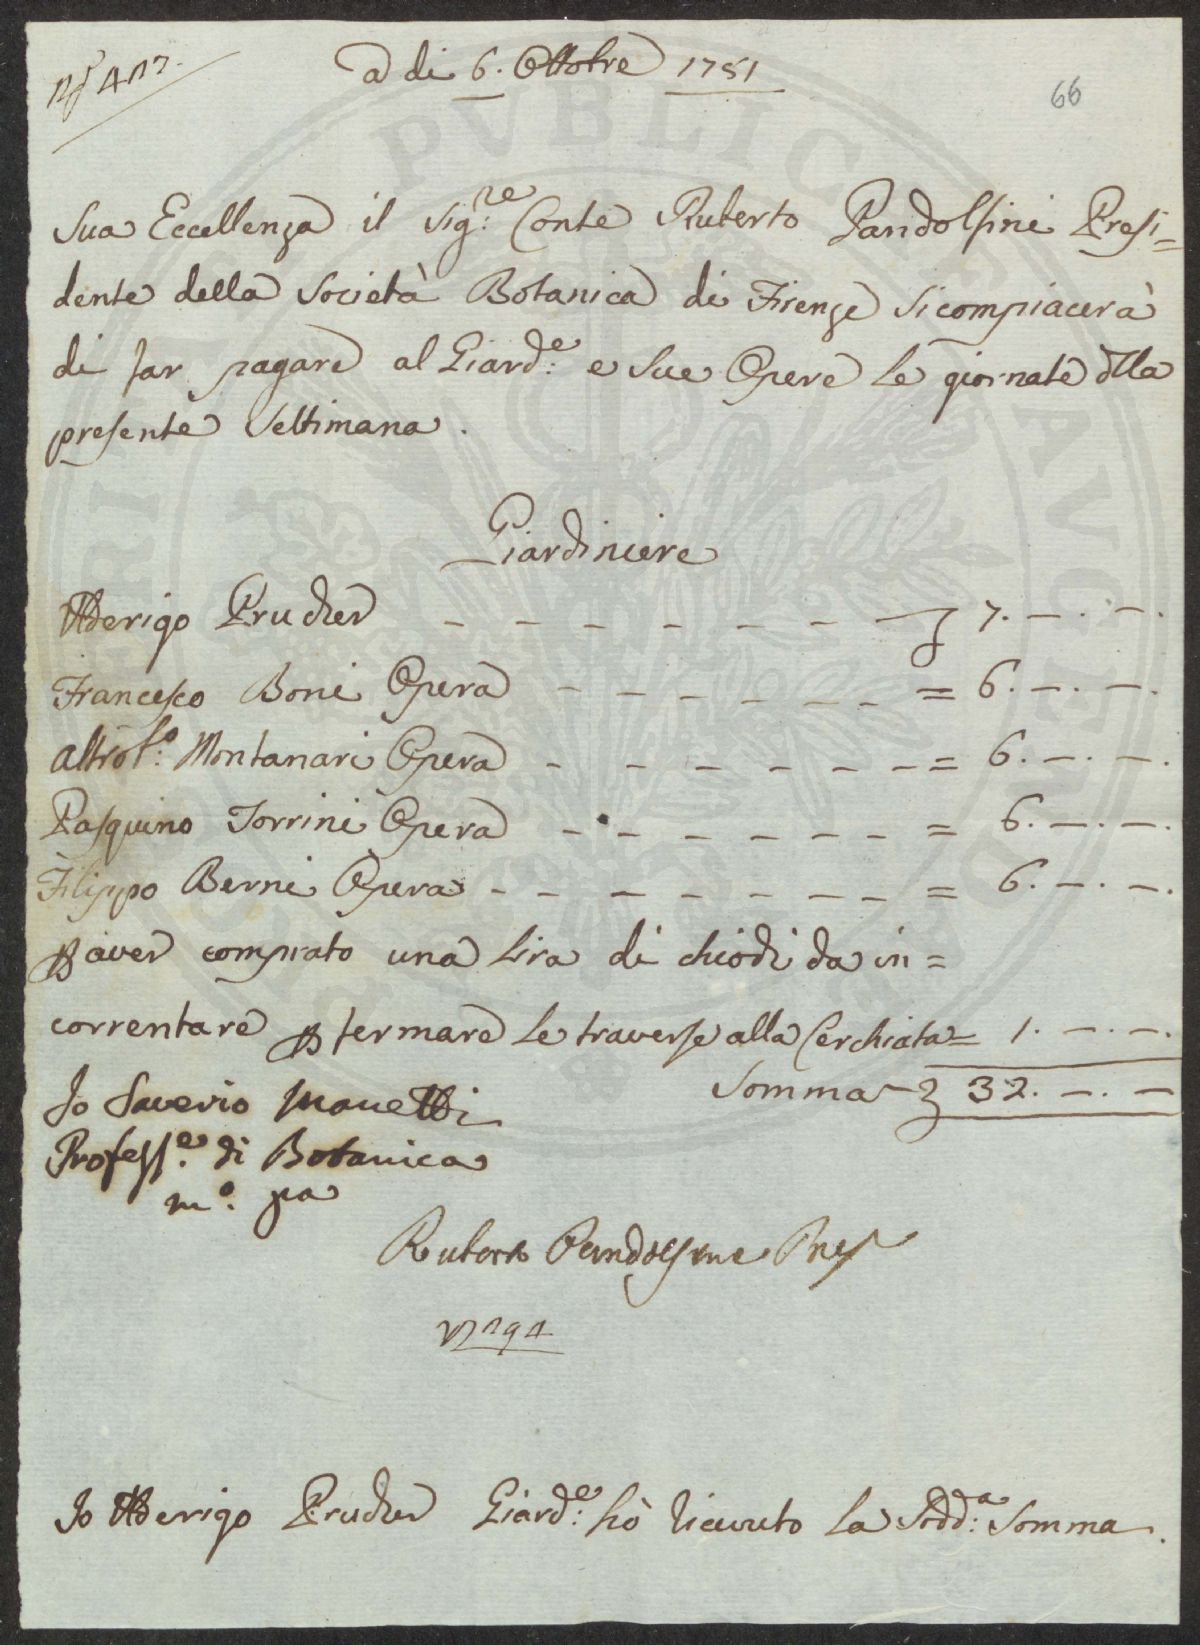 a di 6. Ottobre 1751
66
Sua Eccellenza il Sig:re Conte Ruberto Pandolfini Presi=
dente della Società Botanica di Firenze si compiacerà
di far pagare al Giard:e e Sue Opere le giornate dlla
presente Settimana.
Giardiniere
Pruker - - - - - - - 7. -. -.
Francesco Boni Opera - - - - - - = 6. -. -.
Montanari Opera - - - - - - = 6. -. -.
Pasquino Torrini Opera - - - - - - = 6. -. -.
Filippo Berni Opera - - - - - - - = 6. -. -.
p aver comprato una lira di chiodi da in=
correntare p fermare le traverse alla Cerchiata = 1. -. -.
Somma 32. -. -
Io Saverio Manetti
Profess:e di Botanica
m:o pa
Ruberto Pandolfini Pres
Giard:e hò riceuuto la Sodd:a Somma.
PVBLICAE